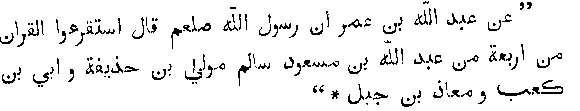 ”عن عبد اللّه بن عمر ان رسول اللّه صلعم قال استقرءوا القران
من اربعة من عبد اللّه بن مسعود سالم مولي بن حذيفة و ابي بن
كعب و معاذ بن جبل *“